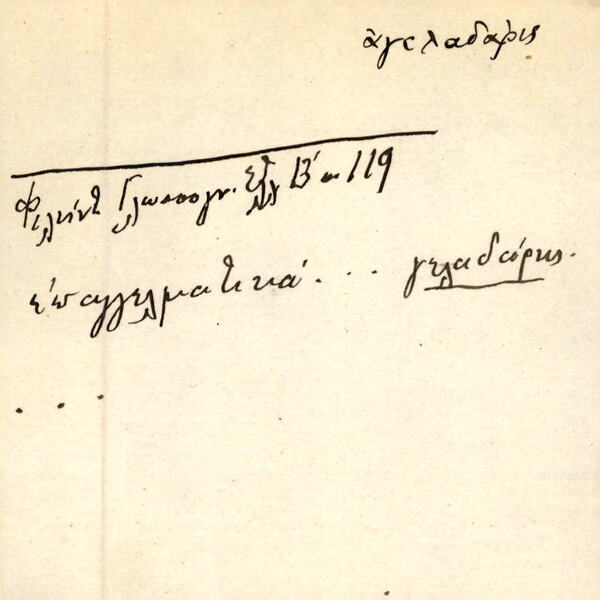 ἀγελαδάρις
Φιλήντ Γλωσσογν. Ἑλλ Β΄ σ. 119
ἐπαγγελματικά . . . γελαδάρις.
. . .